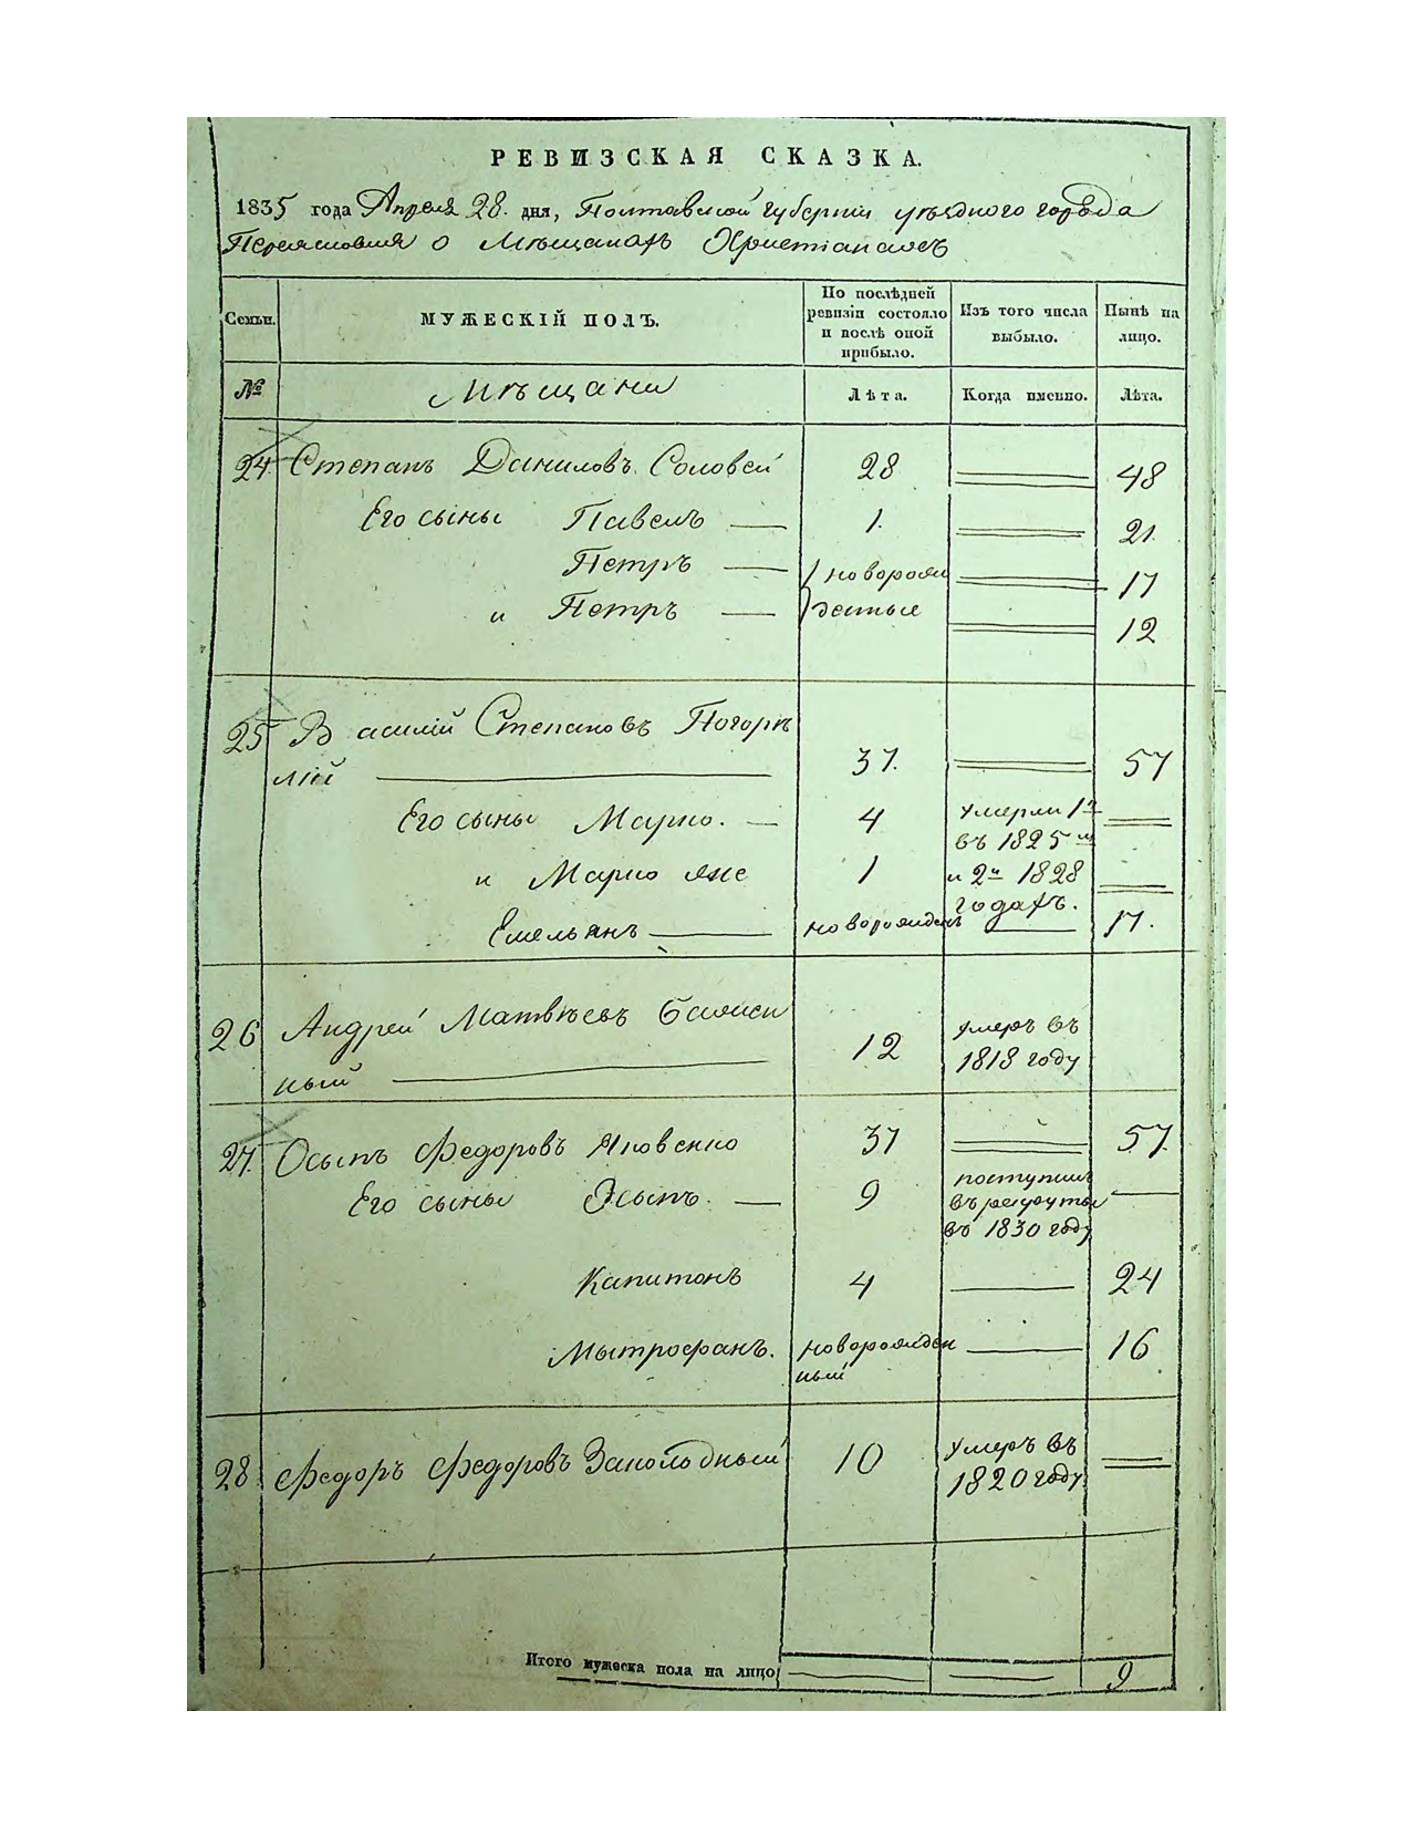 РЕВИЗСКАЯ СКАЗКА.
1835 года Апреля 28. дня, Полтавской губерніи уѣздного города
Переяславля о Мѣщанахъ Христіанахъ
Семьи.
МУЖЕСКІЙ ПОЛЪ.
По послѣдней
ревизіи состояло
и послѣ оной
прибыло.
Изъ того числа
выбыло.
Нынѣ на
лицо.
№
Мѣщани
Лѣта.
Когда именно.
Лѣта.
24 Степанъ Даниловъ Соловей 28 48
Его сыны Павелъ 1. 21
Петръ новорож 17
и Петръ денные 12
25 Василій Степановъ Погорѣ
лій 37. 57
Его сыны Марко. 4 умерли 1й
въ 1825 м
и Марко же 1 и 2й 1828
годахъ.
Емельянъ новорожденъ 17.
26 Андрей Матвѣевъ
ный 12 умеръ въ
1818 году
27. Осыпъ Федоровъ Яковенко 37 57.
Его сыны Осыпъ. 9 поступилъ
въ рекруты
въ 1830 году
Капитонъ 4 24
Мытрофанъ. новорожден 16
ный
28. Федоръ Федоровъ Заколодный 10 умеръ въ
1820 году
Итого мужеска пола на лицо 9